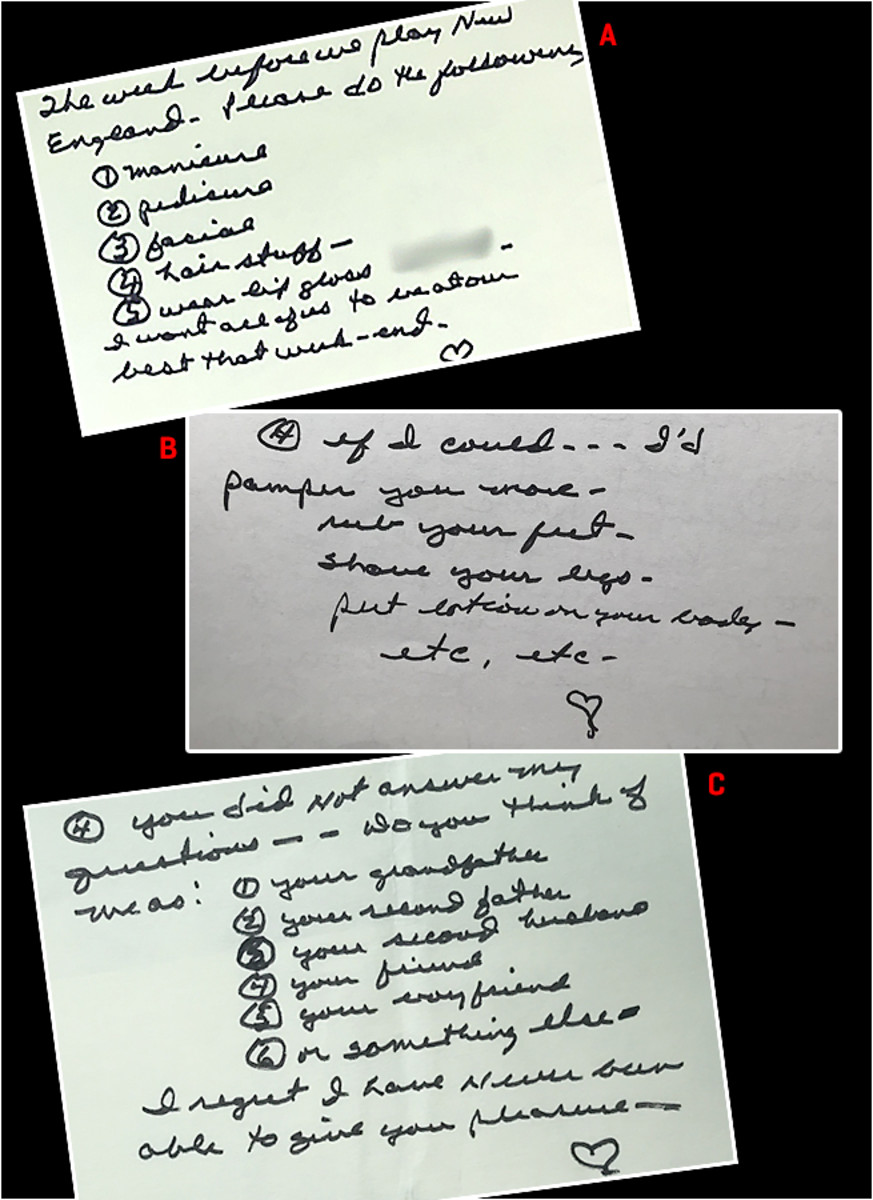 A
The week before we play New
England - Please do the following
① manicure
② pedicure
③ facial
④ hair stuff -
⑤ wear lip gloss -
I want all of us to be at our
best that week-end -
B
④ if I could - - - I'd
pamper you more -
rub your feet -
shave your legs -
put lotion on your body -
etc, etc -
C
④ you did not answer my
questions - - Do you think of
me as:
① your grandfather
② your second father
③ your second husband
④ your friend
⑤ your boyfriend
⑥ or something else -
I regret I have never been
able to give you pleasure -